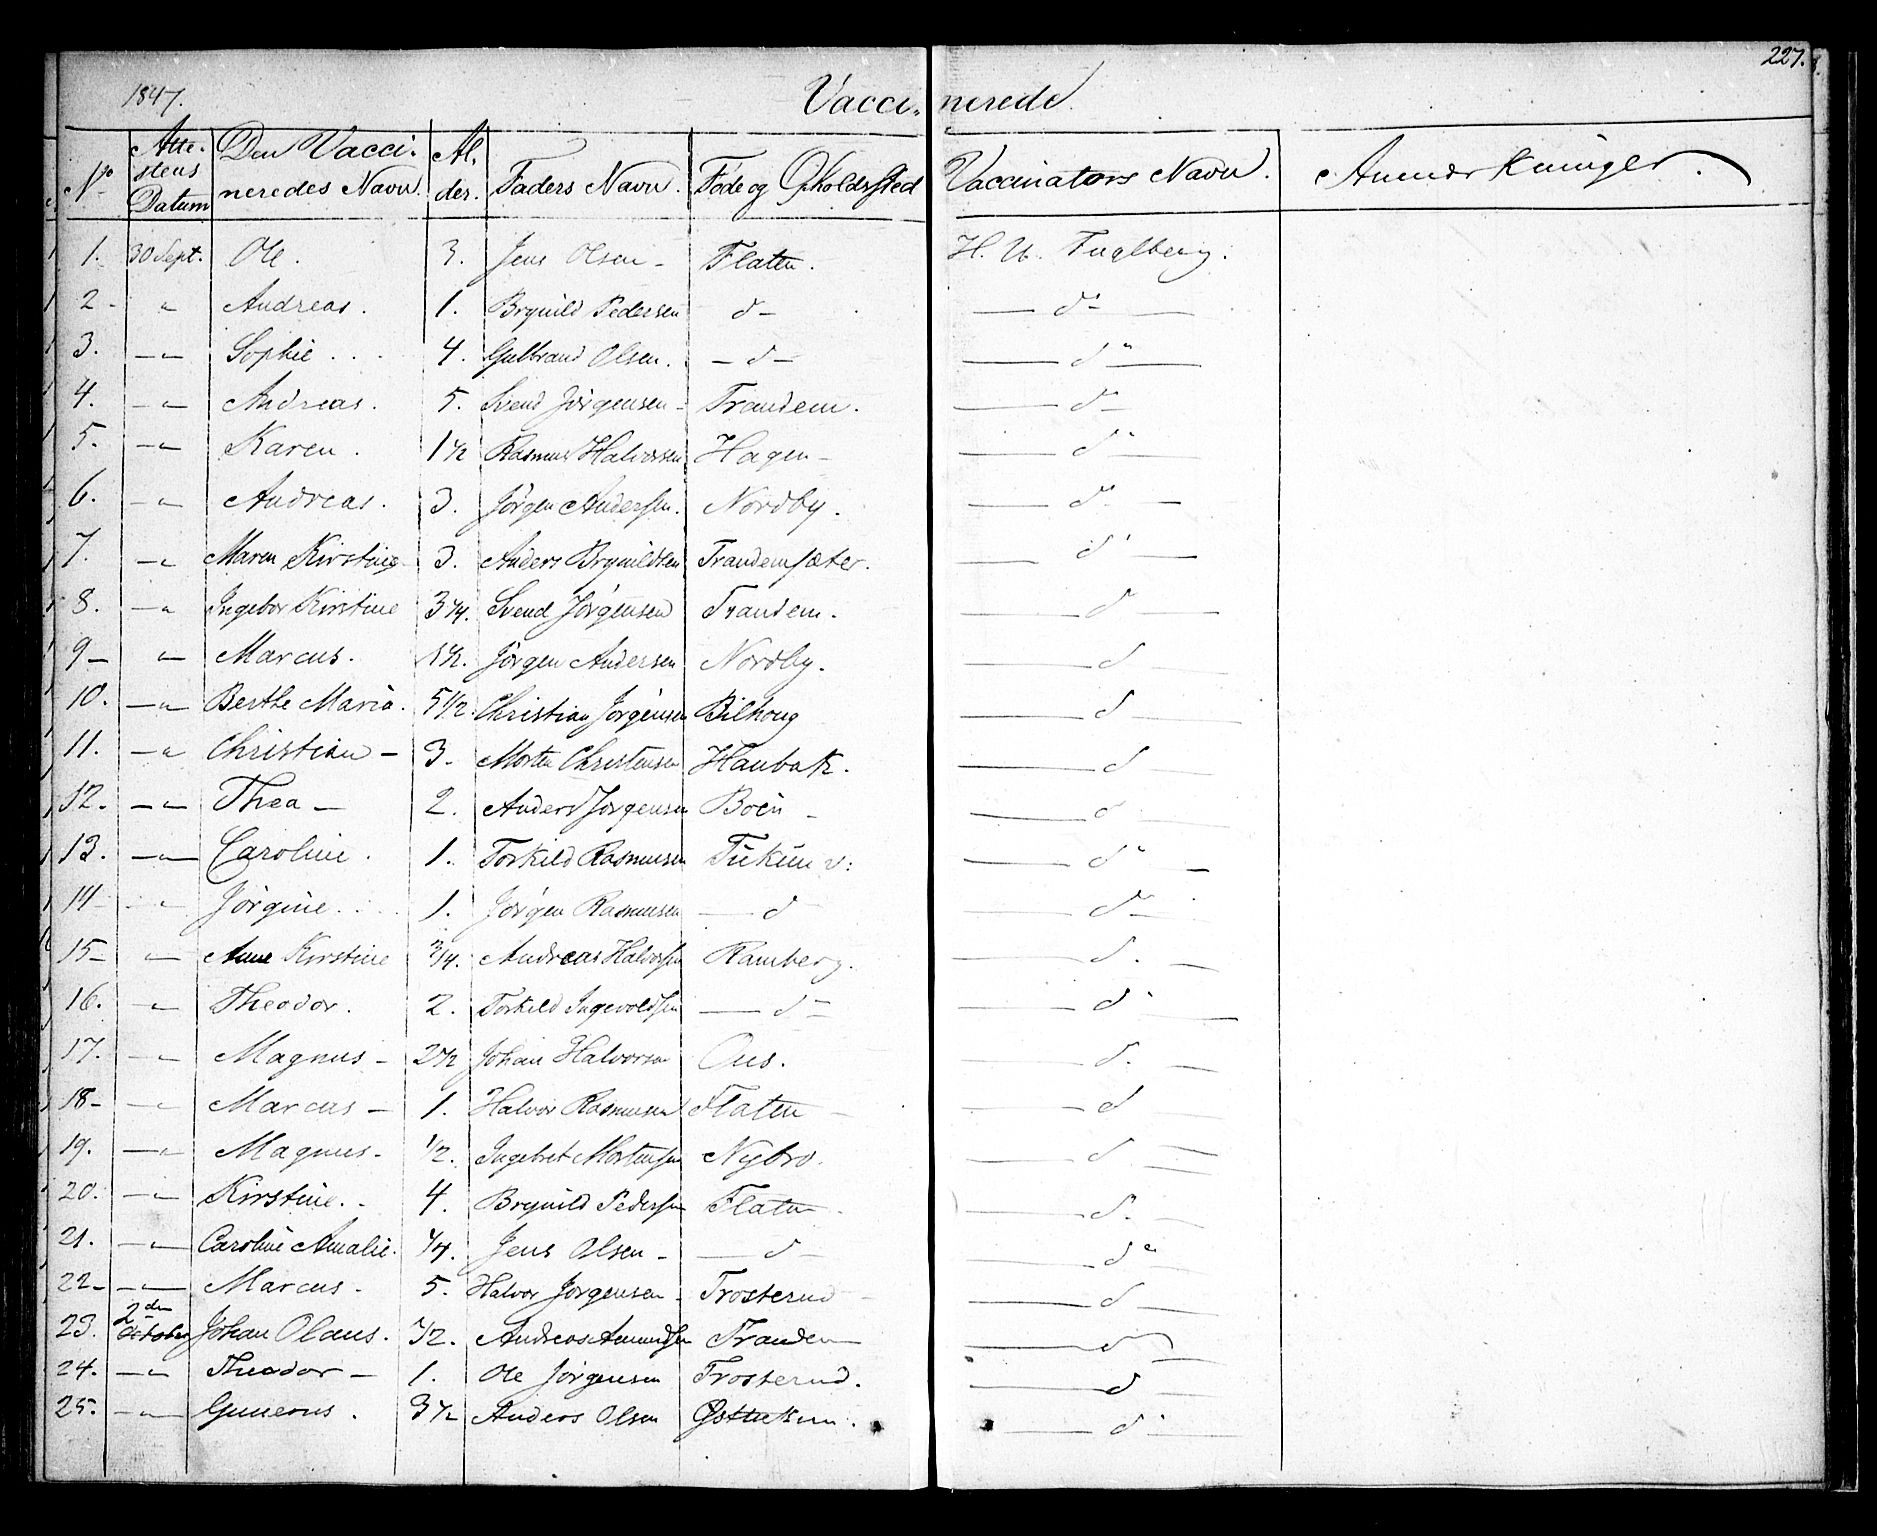 227.
1847. Vaccinerede
No Attestens Datum Den Vaccineredes Navn. Alder. Faders Navn. Føde og Opholdssted Vaccinators Navn. Anmærkninger.
1. 30 Sept. Ole. 3. Jens Olsen - Flaten. H. U. Fuglberg.
2 - " Andreas. 1. Brynild Pedersen d - d -
3. - " Sophie . . . 4. Gulbrand Olsen. - d - d "
4. - " Andreas. 5. Svend Jørgensen - Trandem. d -
5. - " Karen. 1 1/2 Rasmus Halvorsen Hagen - d -
6. - " Andreas. 3. Jørgen Anderssen. Nordby. d "
7. - " Maren Kirstine 3. Anders Brynildsen Trandemsæter. d
8. - " Ingebor Kirstine 3 1/4. Svend Jørgensen Trandem. d
9 - " Marcus. 1 1/2. Jørgen Andersen Nordby. d
10. - " Berthe Maria. 5 1/2. Christian Jørgensen Bilhoug d
11. - " Christian - 3. Morten Christensen Haubak. d
12. - " Thea - 2. Anders Jørgensen Boen - d
13. - " Caroline. 1. Torkild Rasmusen d "
14 - " Jørgine . . . 1. Jørgen Rasmusen d d -
15 - " Anne Kirstine 3/4. Andreas Halvorsen Ramberg. d.
16. - " Theodor. 2. Torkild Ingevoldsen d - d
17. - " Magnus - 2 1/2 Johan Halvorsen Ous. d.
18 - - " Marcus - 1. Halvor Rasmusen Flaten - d
19. - " Magnus. 1/2. Ingebret Mortensen Nybro. d
20. - " Kirstine. - 4. Brynild Pederssen Flaten - d.
21. - " Caroline Amalie. 1/4. Jens Olsen - d - d "
22 - - " Marcus. 5. Halvor Jørgensen - Trosterud - d
23. 2den October Johan Olaus. 1/2. Andreas Amundsen Trandem d
24. - " Theodor - 1. Ole Jørgensen Trosterud. d
25. - " Gunerus. 3 1/2 Anders Olsen d